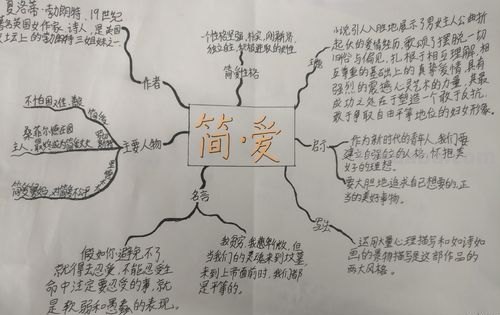 夏洛蒂·勃朗特,19世纪
著名英国女作家、诗人,是英国
文学史上的"勃朗特三姐妹"之一
作者
一个性格坚强,朴实,刚柔并济,
独立自主,积极进取的女性
简爱性格
主题
小说引人入胜地展示了男女主人公曲折
起伏的爱情经历,歌颂了摆脱一切
旧习与偏见,扎根于相互理解,相
互尊重的基础上的真挚爱情,具有
强烈的震撼心灵艺术的力量,其最
成功之处在于塑造一个敢于反抗,
敢于争取自由平等地位的妇女形象。
简·爱
主要人物
不怕困难
桑菲尔德庄园
主人,
启示
作为新时代的青年人,我们要
建立自强的人格,怀抱美
好的理想。
要大胆地追求自己想要的,正
当的美好事物。
写法
运用大量心理描写和如诗如
画的景物描写是这部作品的
两大风格。
名言
假如你避免不了,
就得去忍受,不能忍受生
命中注定要忍受的事,就
是软弱和愚蠢的表现。
我穷,我卑微,但
当我们的灵魂来到坟墓
来到上帝面前时,我们都
是平等的。